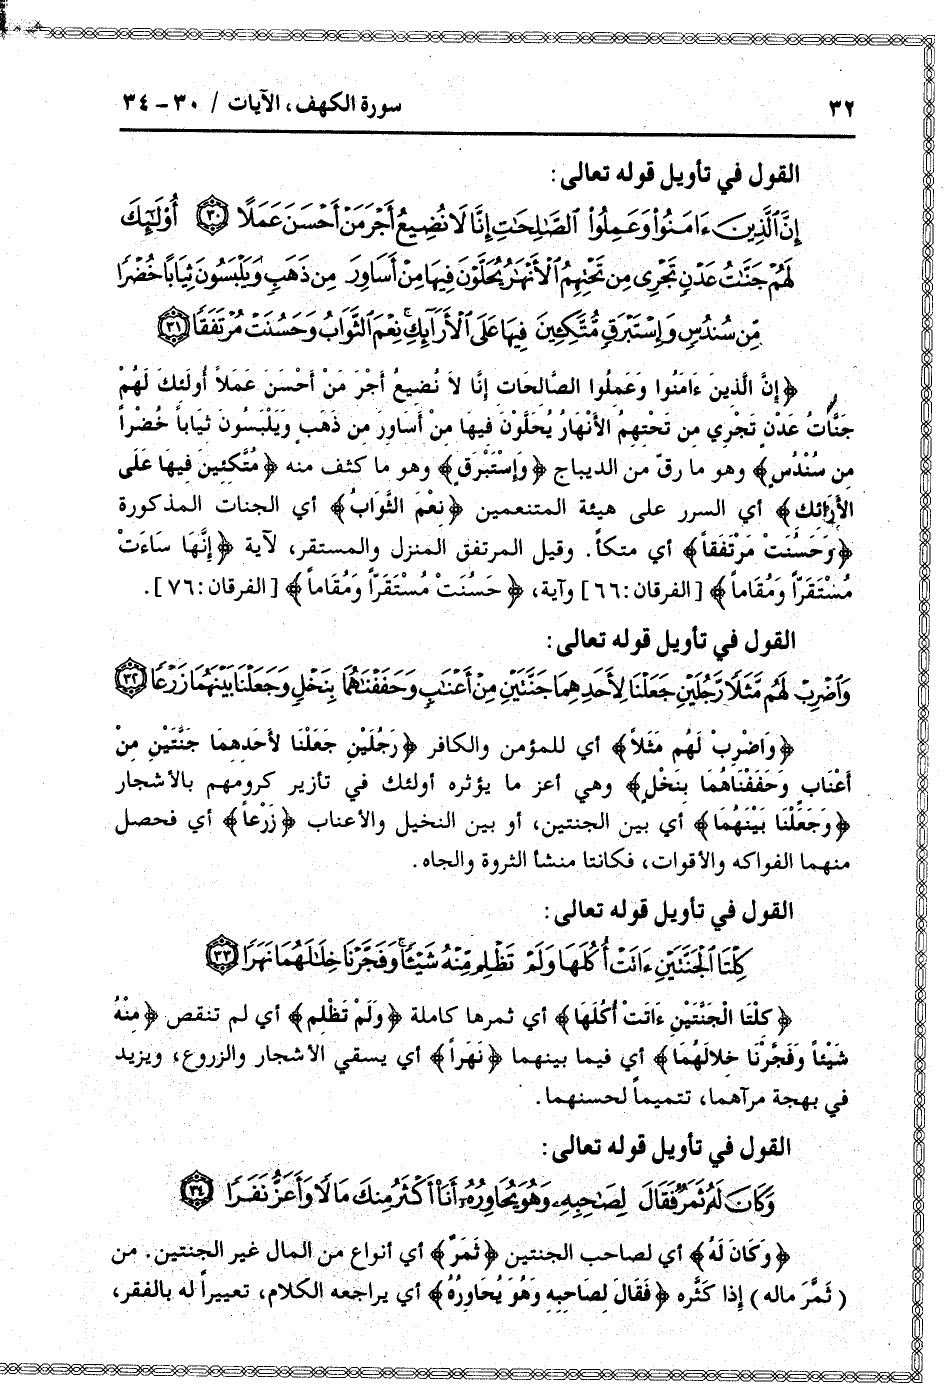 ٣٢
سورة الكهف، الآيات / ٣٠ - ٣٤
القول في تأويل قوله تعالى:
إِنَّ ٱلَّذِينَ ءَامَنُوا۟ وَعَمِلُوا۟ ٱلصَّـٰلِحَـٰتِ إِنَّا لَا نُضِيعُ أَجْرَ مَنْ أَحْسَنَ عَمَلًا ﴿٣٠﴾ أُو۟لَـٰٓئِكَ
لَهُمْ جَنَّـٰتُ عَدْنٍ تَجْرِى مِن تَحْتِهِمُ ٱلْأَنْهَـٰرُ يُحَلَّوْنَ فِيهَا مِنْ أَسَاوِرَ مِن ذَهَبٍ وَيَلْبَسُونَ ثِيَابًا خُضْرًا
مِّن سُندُسٍ وَإِسْتَبْرَقٍ مُّتَّكِـِٔينَ فِيهَا عَلَى ٱلْأَرَآئِكِ ۚ نِعْمَ ٱلثَّوَابُ وَحَسُنَتْ مُرْتَفَقًا ﴿٣١﴾
﴿إِنَّ الَّذِينَ ءَامَنُوا وَعَمِلُوا الصَّالِحَاتِ إِنَّا لَا نُضِيعُ أَجْرَ مَنْ أَحْسَنَ عَمَلاً أُولَئِكَ لَهُمْ
جَنَّاتُ عَدْنٍ تَجْرِي مِن تَحْتِهِمُ الأَنْهَارُ يُحَلَّوْنَ فِيهَا مِنْ أَسَاوِرَ مِن ذَهَبٍ وَيَلْبَسُونَ ثِيَاباً خُضْراً
مِن سُنْدُسٍ﴾ وهو ما رقّ من الديباج ﴿وَإِسْتَبْرَقٍ﴾ وهو ما كثف منه ﴿مُتَّكِئِينَ فِيهَا عَلَى
الأَرَائِكِ﴾ أي السرر على هيئة المتنعمين ﴿نِعْمَ الثَّوَابُ﴾ أي الجنات المذكورة
﴿وَحَسُنَتْ مُرْتَفَقاً﴾ أي متكأ. وقيل المرتفق المنزل والمستقر، لآية ﴿إِنَّهَا سَاءَتْ
مُسْتَقَرّاً وَمُقَاماً﴾ [الفرقان:٦٦] وآية، ﴿حَسُنَتْ مُسْتَقَرّاً وَمُقَاماً﴾ [الفرقان:٧٦].
القول في تأويل قوله تعالى:
وَٱضْرِبْ لَهُم مَّثَلًا رَّجُلَيْنِ جَعَلْنَا لِأَحَدِهِمَا جَنَّتَيْنِ مِنْ أَعْنَـٰبٍ وَحَفَفْنَـٰهُمَا بِنَخْلٍ وَجَعَلْنَا بَيْنَهُمَا زَرْعًا ﴿٣٢﴾
﴿وَاضْرِبْ لَهُم مَثَلاً﴾ أي للمؤمن والكافر ﴿رَجُلَيْنِ جَعَلْنَا لأَحَدِهِمَا جَنَّتَيْنِ مِنْ
أَعْنَابٍ وَحَفَفْنَاهُمَا بِنَخْلٍ﴾ وهي أعز ما يؤثره أولئك في تأزير كرومهم بالأشجار
﴿وَجَعَلْنَا بَيْنَهُمَا﴾ أي بين الجنتين، أو بين النخيل والأعناب ﴿زَرْعاً﴾ أي فحصل
منهما الفواكه والأقوات، فكانتا منشأ الثروة والجاه.
القول في تأويل قوله تعالى:
كِلْتَا ٱلْجَنَّتَيْنِ ءَاتَتْ أُكُلَهَا وَلَمْ تَظْلِم مِّنْهُ شَيْـًٔا ۚ وَفَجَّرْنَا خِلَـٰلَهُمَا نَهَرًا ﴿٣٣﴾
﴿كِلْتَا الْجَنَّتَيْنِ ءَاتَتْ أُكُلَهَا﴾ أي ثمرها كاملة ﴿وَلَمْ تَظْلِم﴾ أي لم تنقص ﴿مِنْهُ
شَيْئاً وَفَجَّرْنَا خِلالَهُمَا﴾ أي فيما بينهما ﴿نَهَراً﴾ أي يسقي الأشجار والزروع، ويزيد
في بهجة مرآهما، تتميماً لحسنهما.
القول في تأويل قوله تعالى:
وَكَانَ لَهُۥ ثَمَرٌ فَقَالَ لِصَـٰحِبِهِۦ وَهُوَ يُحَاوِرُهُۥٓ أَنَا۠ أَكْثَرُ مِنكَ مَالًا وَأَعَزُّ نَفَرًا ﴿٣٤﴾
﴿وَكَانَ لَهُ﴾ أي لصاحب الجنتين ﴿ثَمَرٌ﴾ أي أنواع من المال غير الجنتين. من
(ثَمَّرَ ماله) إذا كَثَّره ﴿فَقَالَ لِصَاحِبِهِ وَهُوَ يُحَاوِرُهُ﴾ أي يراجعه الكلام، تعييراً له بالفقر،